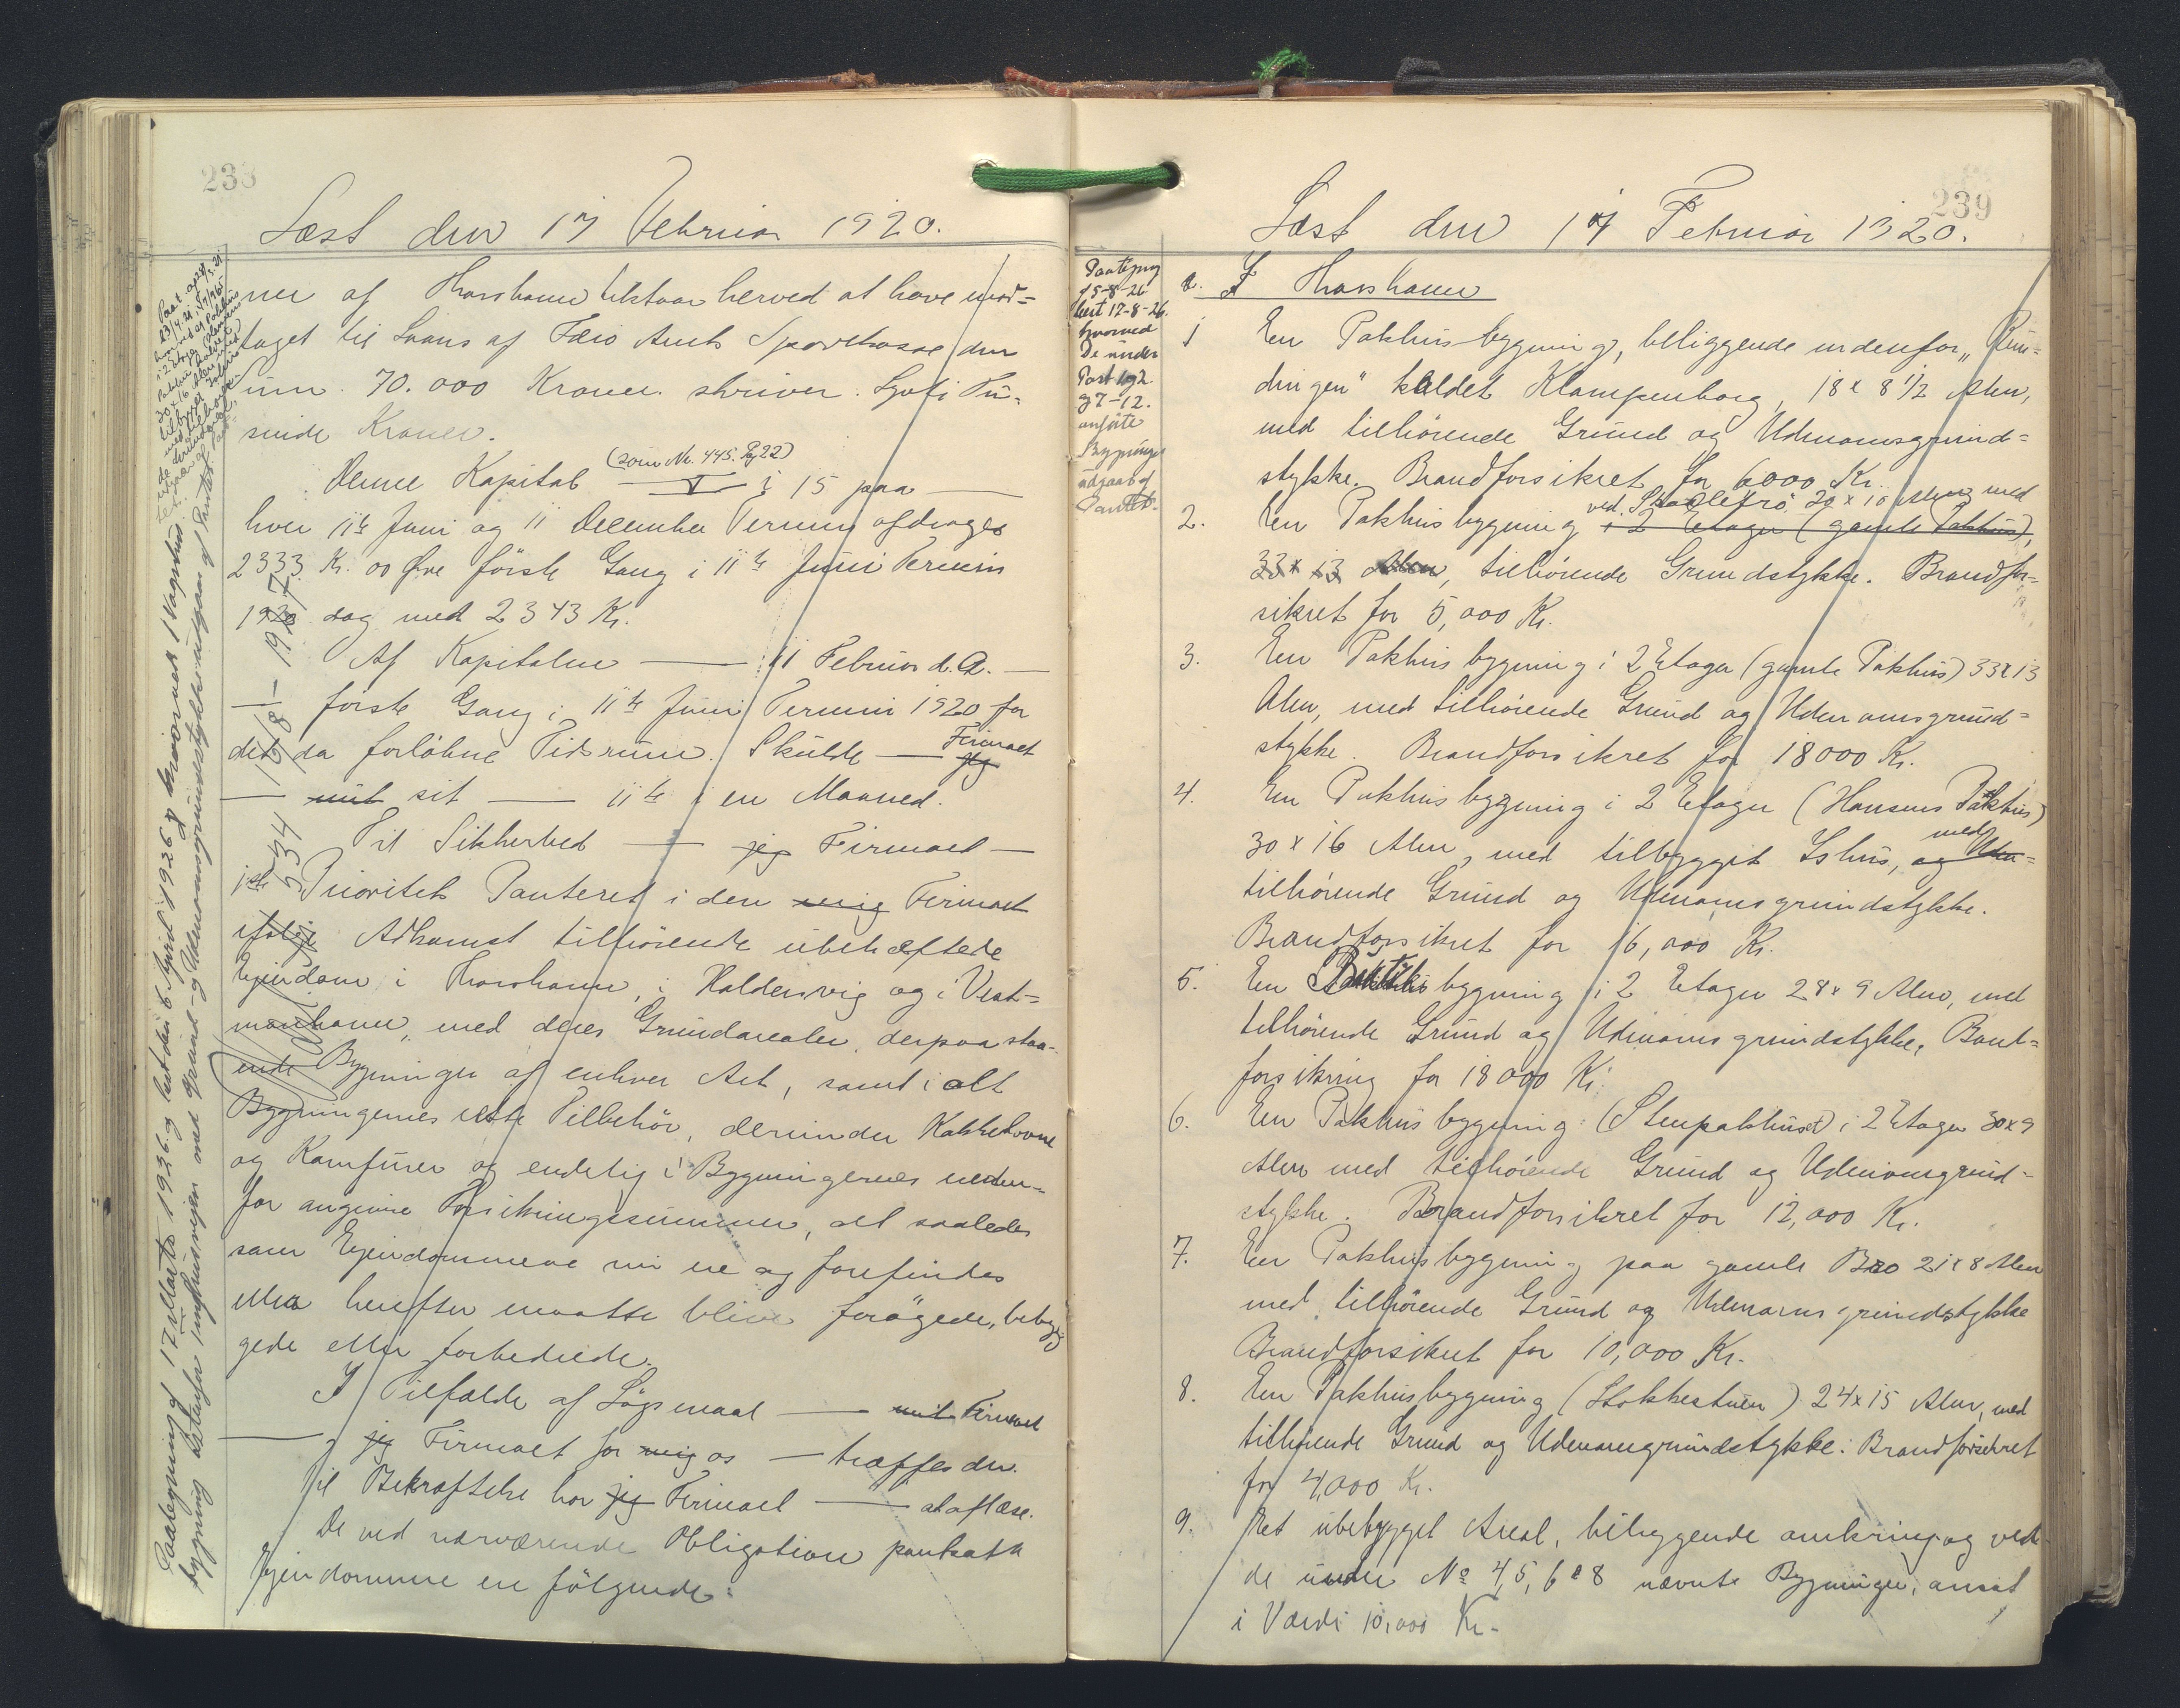 238
Læst den 17 Februar 1920.
ner af Thorshavn tilstaar herved at have mod=
taget til Laans af Færø Amts Sparekasse den
Sum 70.000 Kroner skriver Syvti Tu=
sinde Kroner.
(som No. 445. Pg 22)
Denne Kapital — i 15 paa —
hver 11te Juni og 11 December Termin afdrages
2333 Kr. 00 Øre første Gang i 11te Juni Termin
1920 dog med 2343 Kr.
Af Kapitalen — 11 Februar d.A. —
— første Gang i 11te Juni Termin 1920 for
det da forløbne Tidsrum. Skulde — jeg Firmaet
— mit sit — 11te i en Maaned.
Til Sikkerhed — jeg Firmaet —
1ste Prioritets Panteret i den mig Firmaet
ifølge Adkomst tilhørende ubehæftede
Ejendom i Thorshavn, i Haldersvig og i Vest=
manhavn, med deres Grundarealer, derpaa staa-
ende Bygninger af enhver Art, samt i alt
Bygningernes Tilbehør, derunder Kakkelovne
og Komfurer og endelig i Bygningernes neden=
for angivne Forsikringssummer, alt saaledes
som Ejendommene nu er og forefindes
eller herefter maatte blive forøgede, bebyg
gede eller forbedrede.
I Tilfælde af Søgsmaal — mit Firmaet
— jeg Firmaet for mig os — træffes den.
Til Bekræftelse har jeg Firmaet — at aflæse.
De ved nærværende Obligation pantsatte
Ejendomme er følgende:
534 — 15/8 — 1917
Paategning af 17 Marts 1926 og læst den 6 April 1926 hvorved 1 Vognhus
bygning med Grund- og Udenomsgrundstykke udgaar af Pantet
239
Læst den 17 Februar 1920.
Paategng
15-8-26
læst 17-8-26.
hvorved
De under
Post 1 og 2
og 7-12.
anførte
Bygninger
udgaar af
Pantet.
a. I Thorshavn
1 En Pakhusbygning, beliggende udenfor "Run=
dingen" kaldet Klampenborg, 18 x 8 1/2 Alen,
med tilhørende Grund og Udenomsgrund=
stykke. Brandforsikret for 6000 Kr.
ved. 20 x 10 Alen med
2. En Pakhusbygning i 2 Etager (gamle Pakhus),
33 x 13 Alen, tilhørende Grundstykke. Brandfor=
sikret for 5,000 Kr.
3. En Pakhusbygning i 2 Etager (gamle Pakhus) 33 x 13
Alen, med tilhørende Grund og Udenomsgrund=
stykke. Brandforsikret for 18000 Kr.
4. En Pakhusbygning i 2 Etager (Hansens Pakhus)
30 x 16 Alen, med tilbygget Ishus, og Uden= med
tilhørende Grund og Udenomsgrundstykke.
Brandforsikret for 16,000 Kr.
5. En Butiksbygning i 2 Etager 28 x 9 Alen, med
tilhørende Grund og Udenomsgrundstykke, Band=
forsikring for 18000 Kr.
6. En Pakhusbygning (Stenpakhuset) i 2 Etager 30 x 9
Alen med tilhørende Grund og Udenomsgrund=
stykke. Brandforsikret for 12,000 Kr.
7. En Pakhusbygning paa gamle Bro 21 x 8 Alen
med tilhørende Grund og Udenomsgrundstykke
Brandforsikret for 10,000 Kr.
8. En Pakhusbygning (Stokkestuen) 24 x 15 Alen, med
tilhørende Grund og Udenomsgrundstykke: Brandforsikret
for 4,000 Kr.
9. Et ubebygget Areal, beliggende omkring og ved
de under No 4, 5, 6 & 8 nævnte Bygninger, ansat
i Værdi 10,000 Kr.